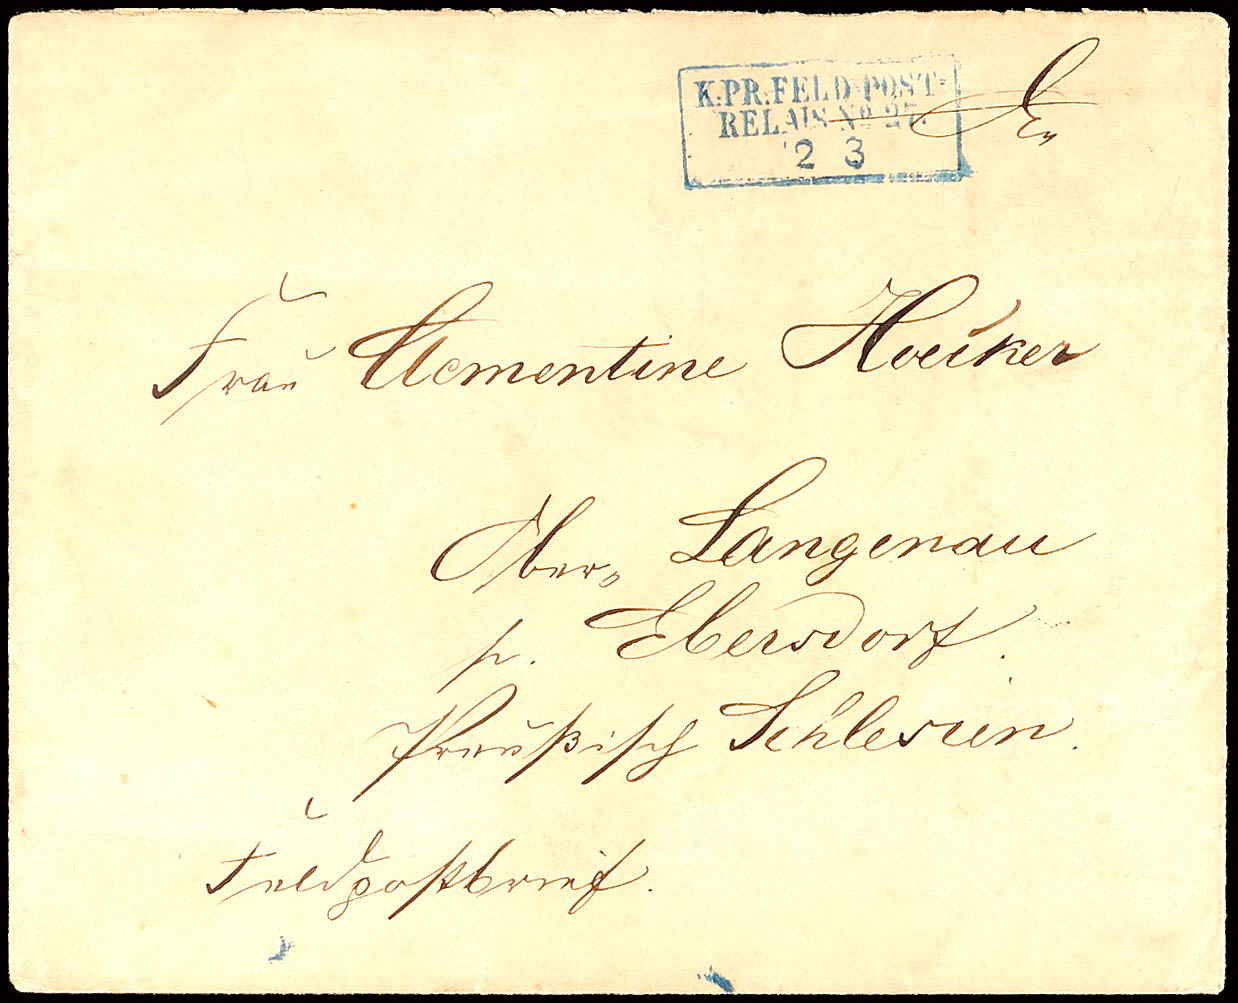 K:PR:FELD-POST-
RELAIS No 27.
2 3
Frau Clementine Hoecker
Ober-Langenau
p. Ebersdorf.
Preußisch Schlesien.
Feldpostbrief.